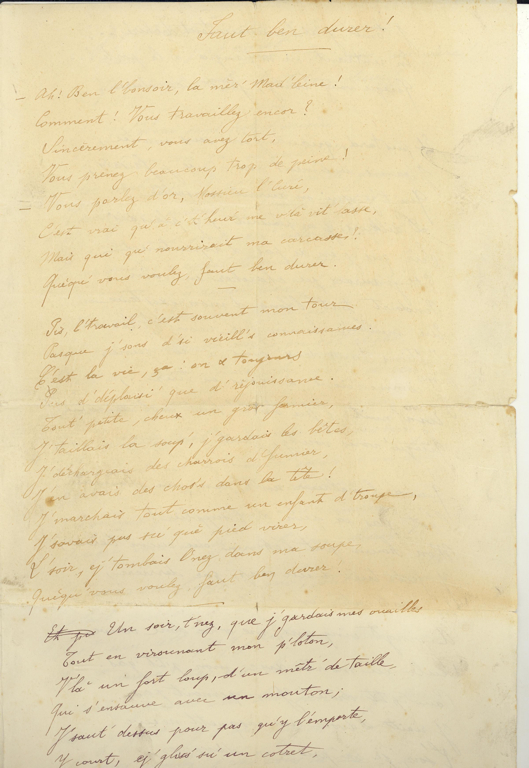 Faut ben durer !
— Ah ! Ben l'bonsoir, la mèr' Mad'leine !
Comment ! Vous travaillez encor ?
Sincèrement, vous avez tort,
Vous prenez beaucoup trop de peine !
— Vous parlez d'or, Mossieu l'Curé,
C'est vrai qu'à c'tt' heur' me v'là vit' asse,
Mais qui qu' nourrirait ma carcasse !
Quéqu' vous voulez, faut ben durer.
Pis, l'travail, c'est souvent mon tour
Pasque j'sons d'si vieill's connaissances.
C'est la vie, ça : on a toujours
Pus d'déplausi' que d'réjouissance.
Tout' petite, cheux un gros farmier,
J'taillais la soup', j'gardais les bêtes,
J'déchargeais des charrois d'fumier,
J'en avais des chos's dans la tête !
J'marchais tout comme un enfant d'troupe,
J'savais pas su qué pied virer,
L'soir, ej' tombais l'nez dans ma soupe,
Quéqu' vous voulez faut ben durer !
Un soir, t'nez, que j'gardais mes ouailles
Tout en virounant mon p'loton,
V'là un fort loup, d'un mètr' de taille,
Qui s'ensauve avec un mouton ;
J'saut' dessus pour pas qu'y l'emporte,
Y court, ej' gliss' su' un cotret,